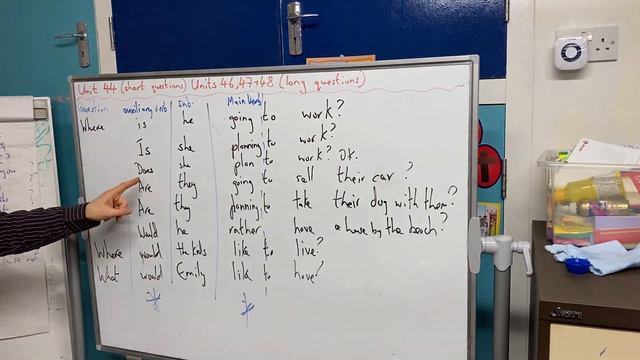 Unit 44 (short questions) Units 46, 47 + 48 (long questions)
question auxiliary verb sub. Main Verb
Where is he going to work?
Is she planning to work?
Does she plan to work? OR.
Are they going to sell their car?
Are they planning to take their dog with them?
Would he rather have a house by the beach?
Where would the kids like to live?
What would Emily like to have?